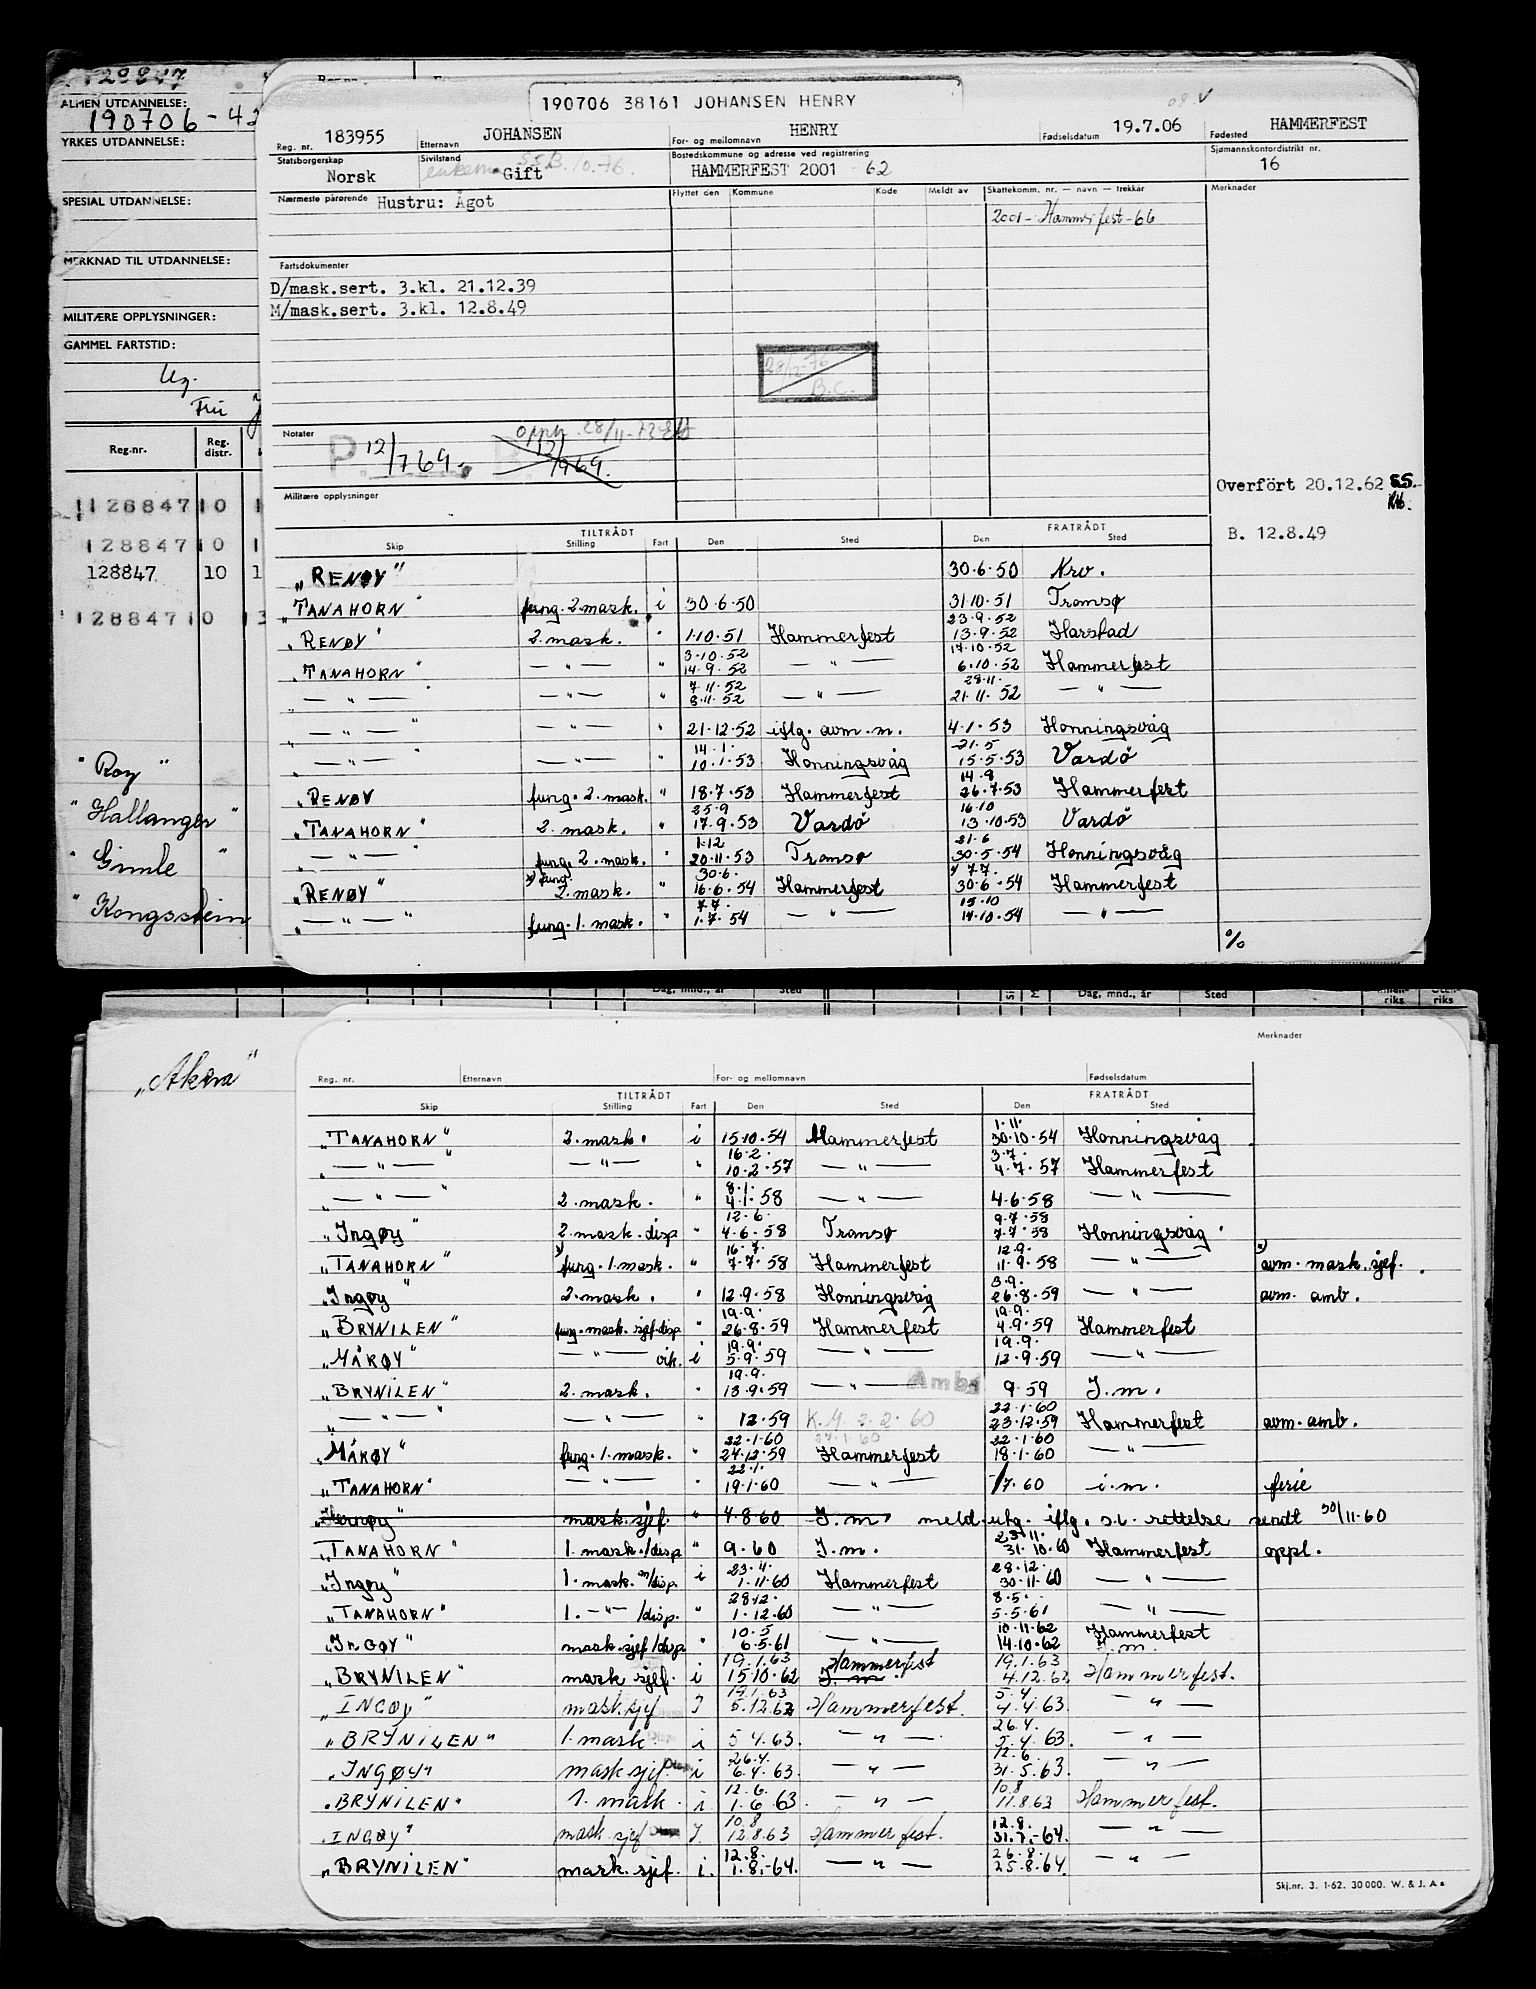 128847
ALMEN UTDANNELSE:
190706-42
YRKES UTDANNELSE:
SPESIAL UTDANNELSE:
MERKNAD TIL UTDANNELSE:
MILITÆRE OPPLYSNINGER:
GAMMEL FARTSTID:
Ug.
Fru
Reg.nr. Reg. distr.
128847 10 1
128847 10 1
128847 10 1
128847 10 3
"Roy"
"Hallanger"
"Gimle"
"Kongsstein
190706 38161 JOHANSEN HENRY
08 V
Reg. nr. 183955 Etternavn JOHANSEN For- og mellomnavn HENRY Fødselsdatum 19.7.06 Fødested HAMMERFEST
Statsborgerskap Norsk Sivilstand enkem. Gift S.S.B. 10.76. Bostedskommune og adresse ved registrering HAMMERFEST 2001 -62 Sjømannskontordistrikt nr. 16
Nærmeste pårørende Hustru: Ågot Flyttet den Kommune Kode Meldt av Skattekomm. nr. — navn — trekkår Merknader
2001 - Hammerfest - 66
Fartsdokumenter
D/mask.sert. 3.kl. 21.12.39
M/mask.sert. 3.kl. 12.8.49
28/12-76
B.C.
Notater
P. 12/769.
Opph. 28/11-72
12/1969.
Militære opplysninger
Overfört 20.12.62 SS.
B. 12.8.49
TILTRÅDT FRATRÅDT
Skip Stilling Fart Den Sted Den Sted
"RENØY" 30.6.50 Nrv.
"TANAHORN" fung. 2. mask. i 30.6.50 31.10.51 Tromsø
23.9.52
"RENØY" 2. mask. " 1.10.51 Hammerfest 13.9.52 Harstad
3.10.52 17.10.52
"TANAHORN" — " — " 14.9.52 — " — 6.10.52 Hammerfest
7.11.52 28.11.
— " — — " — " 8.11.52 — " — 21.11.52 — " —
— " — — " — " 21.12.52 iflg. avm. m. 4.1.53 Honningsvåg
14.1. 21.5
— " — — " — 10.1.53 Honningsvåg 15.5.53 Vardö
14.8
"RENØY fung. 2. mask. " 18.7.53 Hammerfest 26.7.53 Hammerfest
25.9 16.10
"TANAHORN" 2. mask. " 17.9.53 Vardö 13.10.53 Vardö
1.12 21.6
— " — fung. 2. mask. " 20.11.53 Tromsø 30.5.54 Honningsvåg
x) fung. 30.6. 7.7.
"RENØY" 2. mask. " 16.6.54 Hammerfest 30.6.54 Hammerfest
7.7. 15.10
— " — fung. 1. mask. " 1.7.54 — " — 14.10.54 — " —
%
Dag, mnd., år Sted Dag, mnd., år Sted
"Akera"
Merknader
Reg. nr. Etternavn For- og mellomnavn Fødselsdatum
TILTRÅDT FRATRÅDT
Skip Stilling Fart Den Sted Den Sted
1.11.
"TANAHORN" 2. mask. i 15.10.54 Hammerfest 30.10.54 Honningsvåg
16.2. 3.7.
— " — — " — " 10.2.57 — " — 4.7.57 Hammerfest
8.1.
— " — 2. mask. " 4.1.58 — " — 4.6.58 — " —
12.6. 9.7.58
"Ingøy" 2. mask. disp " 4.6.58 Tromsø 7.7.58 Honningsvåg
16.7. 12.9.
"TANAHORN" x) fung. 1. mask. " 7.7.58 Hammerfest 11.9.58 — " — x) avm. mask. sjef.
3.9.
"Ingøy" 2. mask. " 12.9.58 Honningsvåg 26.8.59 — " — avm. amb.
19.9. 19.9.
"BRYNILEN" fung. mask. sjef. disp " 26.8.59 Hammerfest 4.9.59 Hammerfest
19.9. 19.9.
"MÅRØY" — " — vik. i 5.9.59 — " — 12.9.59 — " —
19.9.
"BRYNILEN" 2. mask. " 13.9.59 — " — Amb. 9.59 I.m.
22.1.60
— " — — " — " 12.59 K.M. 2.2.60 23.12.59 Hammerfest avm. amb.
22.1.60 27.1.60 22.1.60
"MÅRØY" fung. 1. mask. " 24.12.59 Hammerfest 18.1.60 — " —
22.1.
"TANAHORN" — " — " 19.1.60 — " — 1/7.60 i.m. ferie
mask. sjef. " 4.8.60 I.m. meld. utg. iflg. s.l. rettelse sendt 30/11.60
23.11.
"TANAHORN" 1. mask./disp " 9.60 I.m. 31.10.60 Hammerfest oppl.
23.11. 28.12.
"Ingøy" 1. mask. m/disp. i 1.11.60 Hammerfest 30.11.60 — " —
28.12. 8.5.
"TANAHORN" 1. — " — /disp. " 1.12.60 — " — 5.5.61 — " —
10.5 10.11.62 Hammerfest
"INGØY" mask. sjef/disp. " 6.5.61 — " — 14.10.62 I.m.
19.1.63 Hammerfest 19.1.63
"BRYNILEN" mask sjef. i 15.10.62 I.m. 4.12.62 Hammerfest.
19.1.63 5.4.
"INGØY" mask. sjef I 5.12.62 Hammerfest. 4.4.63 — " —
26.4.
"BRYNILEN" 1. mask. i 5.4.63. — " — 5.4.63. — " —
26.4. 12.6.
"INGØY" mask sjef. Disp i 6.4.63. — " — 31.5.63. — " —
12.6. 10.8
"BRYNILEN" 1. mask. i 1.6.63. — " — 11.8.63 Hammerfest.
10.8 12.8.
"INGØY" mask sjef Disp I. 12.8.63 Hammerfest. 31.7.-64. — " —
12.8. 26.8.
"BRYNILEN" mask. sjef. i. 1.8.-64. — " — 25.8.64. — " —
Skj.nr. 3. 1-62. 30 000. W. & J. A s